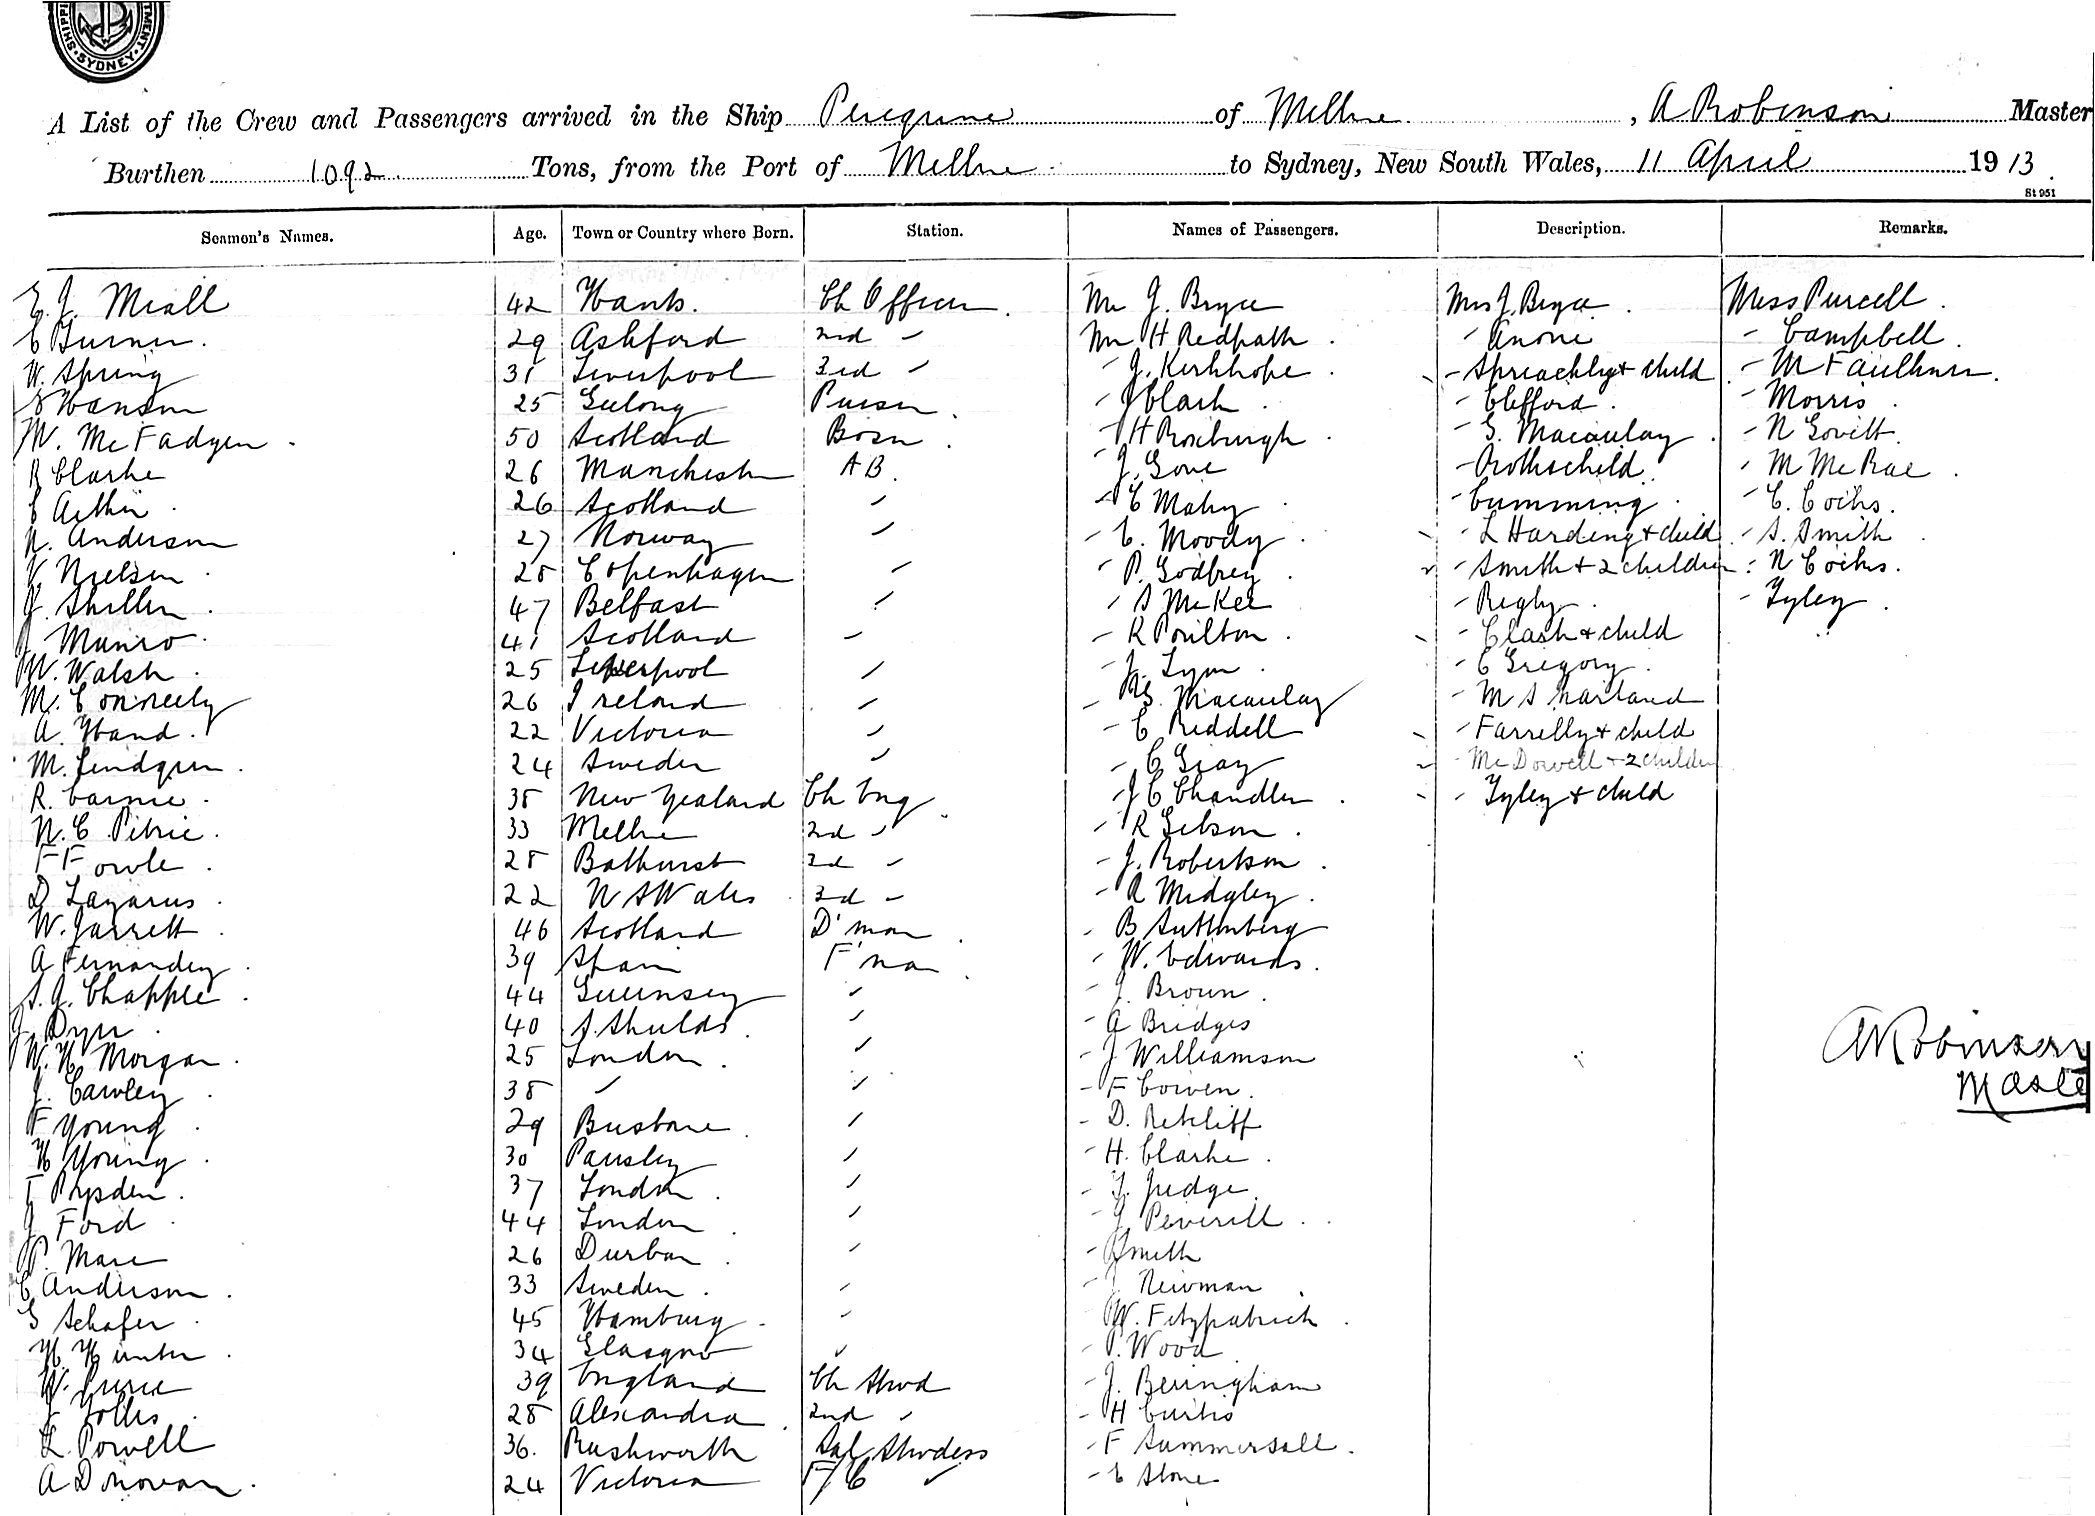 SHIPPI TMENT
SYDNEY
A List of the Crew and Passengers arrived in the Ship Peregrine of Melbne, A Robinson Master
Burthen 1092 Tons, from the Port of Melbne to Sydney, New South Wales, 11 April 1913.
St 951
Seamen's Names. Age. Town or Country where Born. Station. Names of Passengers. Description. Remarks.
E. J. Miall 42 Hants. Ch Officer. Mr J. Bryce Mrs J. Bryce. Miss Purcell.
C Turner. 29 Ashford 2nd " Mr H Redpath. " Anone " Campbell.
W. Spring 31 Liverpool 3rd " " J. Kerkhope. " Spreachley + child " M Faulkner.
Hanson 25 Geelong Purser. " J Clark. " Clifford. " Morris.
W. McFadyen. 50 Scotland Bosn. " H Roxburgh. " G. Macaulay. " N Govett.
R Clarke 26 Manchester AB. " J. Gove " Rothschild. " M McRae.
C Arthur. 26 Scotland " " C Mahy. " Cumming. " C. Cocks.
N. Anderson 27 Norway " " C. Moody. " L Harding + child. " S. Smith.
V. Nielsen. 28 Copenhagen " " P. Godfrey. " Smith + 2 children. " N Cocks.
J. Skillen. 47 Belfast " " S McKee " Rigby. " Tyley.
J Munro. 41 Scotland " " R Poulton. " Clark + child
W. Walsh. 25 Liverpool " " J. Lyon. " C Gregory.
M. Conneely 26 Ireland " " G. Macaulay " M S Harland
A. Hand. 22 Victoria " " C Riddell " Farrelly + child
M. Lindgren. 24 Sweden " " C Gray " McDowell + 2 children
R. Cairnie. 38 New Zealand Ch Eng. " J C Chandler. " Tyley + child
N. C. Petrie. 33 Melbne 2nd " " R Gibson.
F Fowle. 28 Bathurst 2nd " " J. Robertson.
D Lazarus. 22 N S Wales 3rd " " R Midgley.
W. Jarrett. 46 Scotland D'man. " B Suttenberg
A Fernandez. 39 Spain F'man. " W. Edwards.
S. J. Chapple. 44 Guernsey " " J. Brown.
J. Dyer. 40 S. Shields. " " A Bridges
W. H. Morgan. 25 London. " " J Williamson
J. Cawley. 38 " " " F Cowen.
F Young. 29 Brisbane. " " D. Retcliff
H Young. 30 Paisley " " H. Clarke.
T Prysden. 37 London. " " T. Judge.
J Ford. 44 London. " " J Peverill.
P. Mare 26 Durban. " " J Smith
C Anderson. 33 Sweden. " " J Newman.
G Schafer. 45 Hamburg. " " W. Fitzpatrick.
H. Hunter. 34 Glasgow " " P. Wood.
W. Currie 39 England Ch Stwd " J. Beringham
J Jolles. 28 Alexandra. 2nd " " H Curtis
L. Powell 36. Rushworth Sal Stwdess " F Summersall.
A Donovan. 24 Victoria F/C " " E Stone
A Robinson
Master